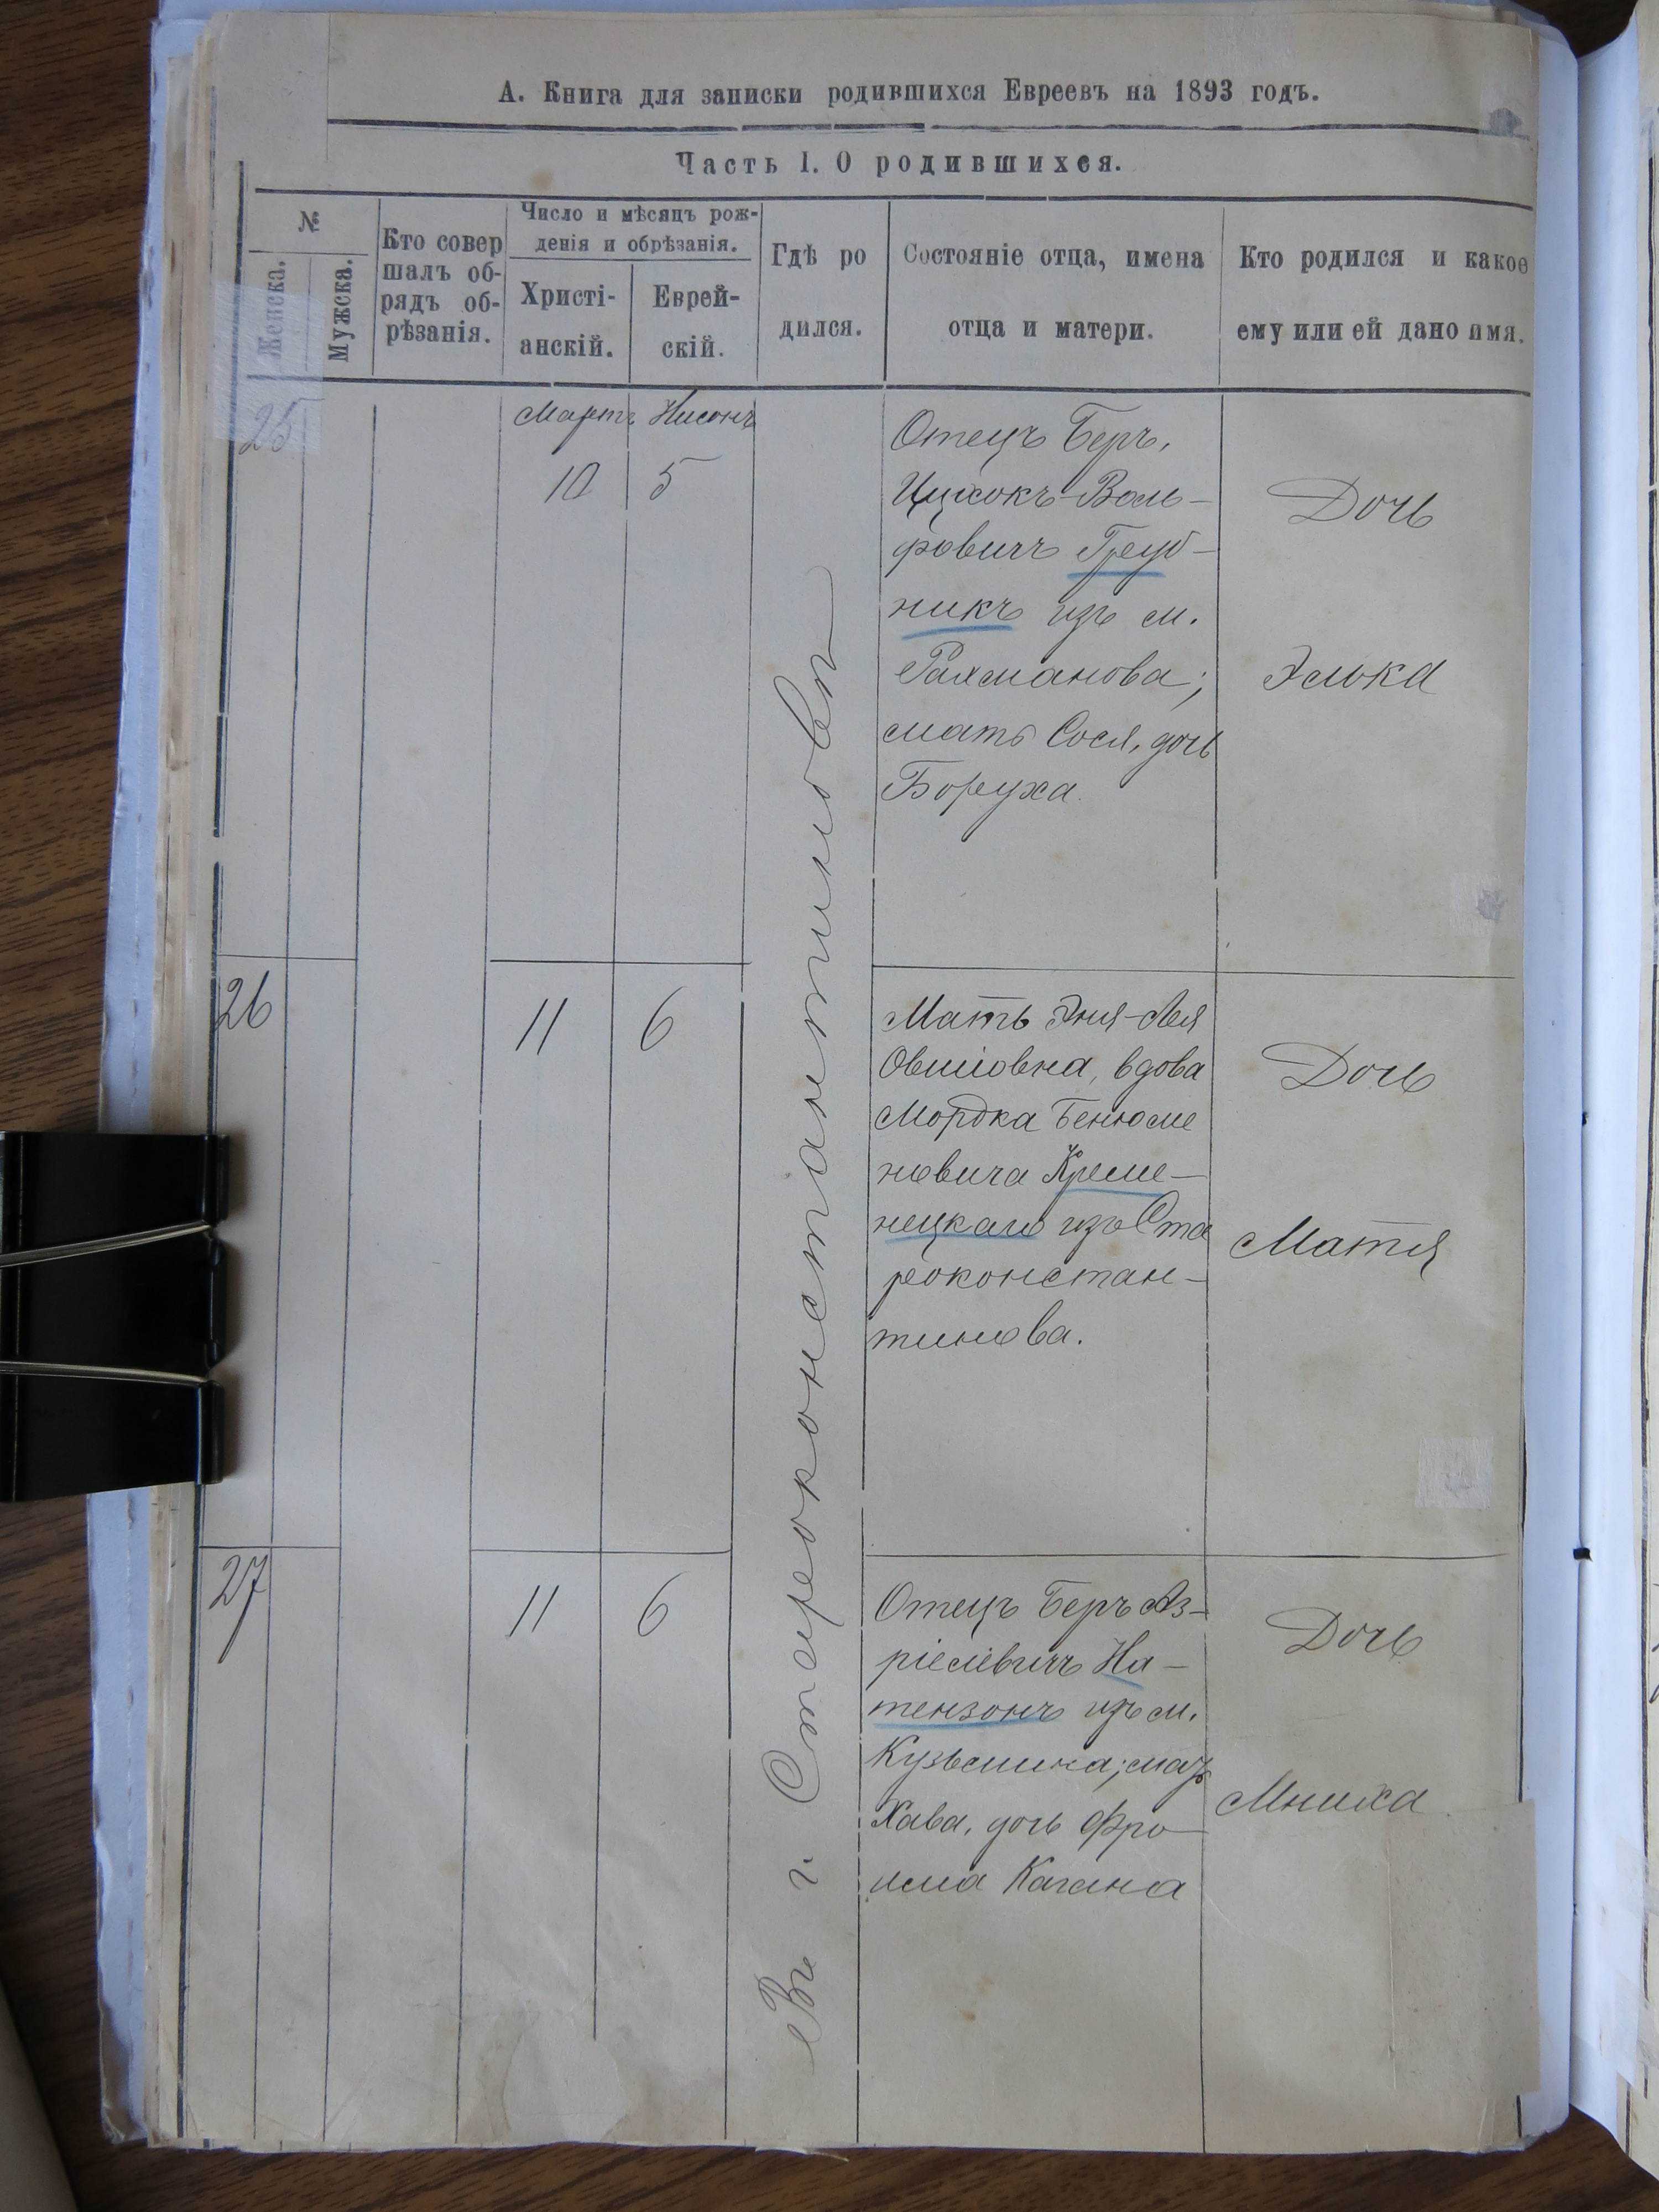 А. Книга для записки родившихся Евреевъ на 1893 годъ.
Часть I. О родившихся.
№
Женска.
Мужска.
Кто совер
шалъ об-
рядъ об-
рѣзанія.
Число и мѣсяцъ рож-
денія и обрѣзанія.
Христі-
анскій.
Еврей-
скій.
Гдѣ ро
дился.
Состояніе отца, имена
отца и матери.
Кто родился и какое
ему или ей дано имя.
Въ г. Староконстантиновѣ
25
Мартъ
10
Нисонъ
5
Отецъ Беръ,
Ицхокъ-Воль-
фовичъ
никъ изъ м.
Рахманова;
мать Сося, дочь
Боруха.
Дочь
Элька
26
11
6
Мать Эня-Лея
Овшіовна, вдова
Мордка Бенюме
новича Креме-
нецкаго изъ Ста
роконстан-
тинова.
Дочь
Матя
27
11
6
Отецъ Беръ Аз-
ріелевичъ На-
тензонъ изъ м.
Кузьмина; мать
Хава, дочь Фро
има Кагана
Дочь
Мниха